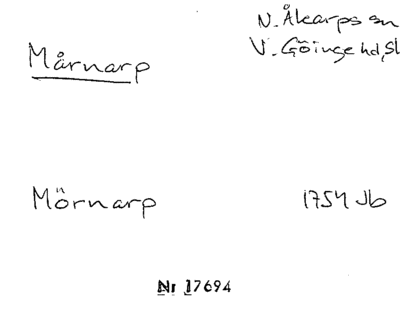 N. Åkarps sn
Mårnarp
V. Göinge hd, Sk
Mörnarp
1754 Jb
Nr 17694